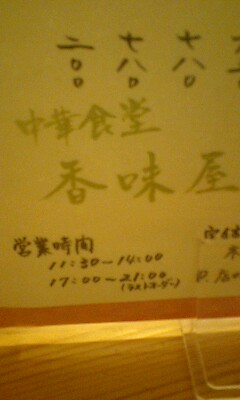 二〇〇
七八〇
七八〇
中華食堂
香味屋
営業時間
11:30〜14:00
17:00〜21:00
(ラストオーダー)
定休
P.